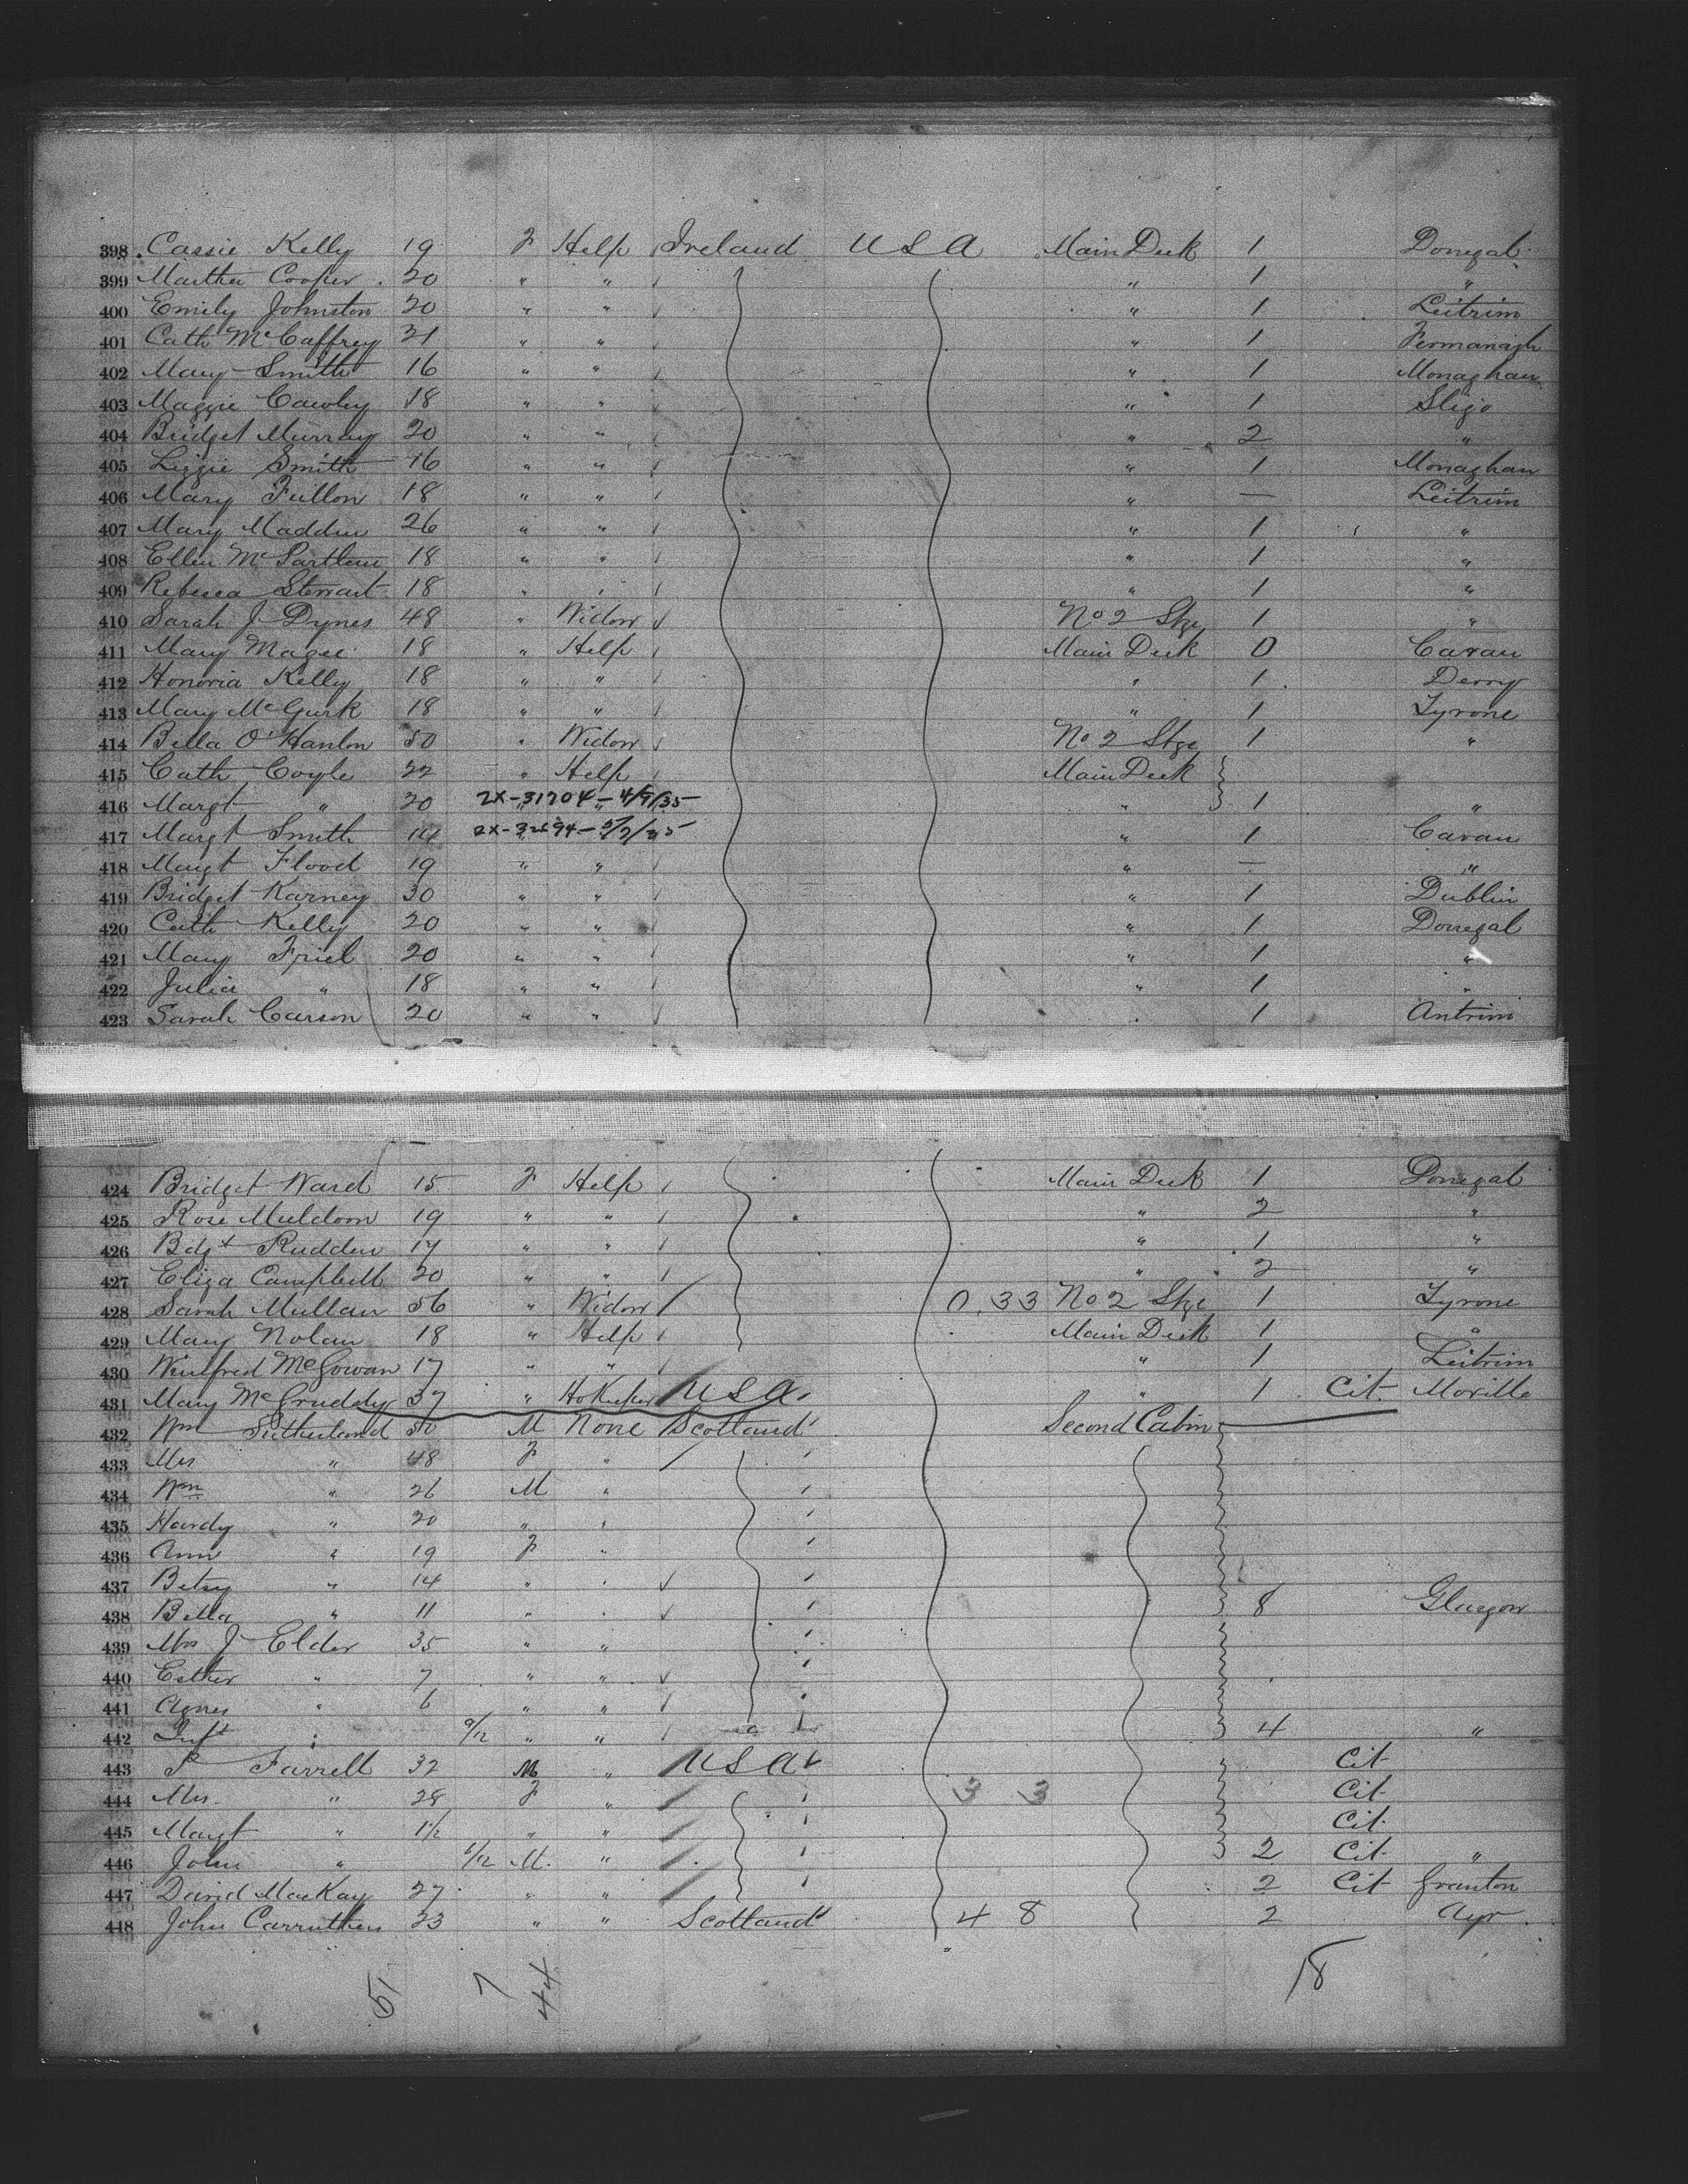 398 Cassie Kelly 19 F Help Ireland USA Main Deck 1 Donegal
399 Martha Cooper 20 " " " 1 "
400 Emily Johnston 20 " " " 1 Leitrim
401 Cath McCaffrey 21 " " " 1 Fermanagh
402 Mary Smith 16 " " " 1 Monaghan
403 Maggie Cawley 18 " " " 1 Sligo
404 Bridget Murray 20 " " " 2 "
405 Lizzie Smith 16 " " " 1 Monaghan
406 Mary Fullon 18 " " " — Leitrim
407 Mary Madden 26 " " " 1 "
408 Ellen McPartlan 18 " " " 1 "
409 Rebecca Stewart 18 " " " 1 "
410 Sarah J Dynes 48 " Widow No 2 Stge 1 "
411 Mary Magee 18 " Help Main Deck 0 Cavan
412 Honoria Kelly 18 " " " 1 Derry
413 Mary McGurk 18 " " " 1 Tyrone
414 Bella O'Hanlon 50 " Widow No 2 Stge 1 "
415 Cath Coyle 22 " Help Main Deck
416 Margt " 20 2X-31204-4/9/35 " 1 "
417 Margt Smith 14 " 1 Cavan
418 Margt Flood 19 " " " — "
419 Bridget Karney 30 " " " 1 Dublin
420 Cath Kelly 20 " " " 1 Donegal
421 Mary Friel 20 " " " 1 "
422 Julia " 18 " " " 1 "
423 Sarah Carson 20 " " " 1 Antrim
424 Bridget Ward 15 F Help Main Deck 1 Donegal
425 Rose Muldoon 19 " " " 2 "
426 Bdgt Rudden 17 " " " 1 "
427 Eliza Campbell 20 " " " 2 "
428 Sarah Mullan 56 " Widow 0.33 No 2 Stge 1 Tyrone
429 Mary Nolan 18 " Help Main Deck 1 "
430 Winifred McGowan 17 " " " 1 Leitrim
431 Mary McGruddy 37 " HoKeeper USA " 1 Cit Moville
432 Wm Sutherland 50 M None Scotland Second Cabin
433 Mrs " 48 F "
434 Wm " 26 M "
435 Hardy " 20 " "
436 Ann " 19 F "
437 Betsy " 14 " "
438 Bella " 11 " " 8 Glasgow
439 Mrs J Elder 35 " "
440 Esther " 7 " "
441 Agnes " 6 " "
442 Inft " 9/12 " " 4 "
443 P Farrell 32 M " USA Cit
444 Mrs " 28 F " 3 3 Cit
445 Margt " 1½ " " Cit
446 John " 1/12 M " 2 Cit "
447 David MacKay 27 " " 2 Cit Granton
448 John Carruthers 23 " " Scotland 4 8 2 Ayr
51 7 44 18